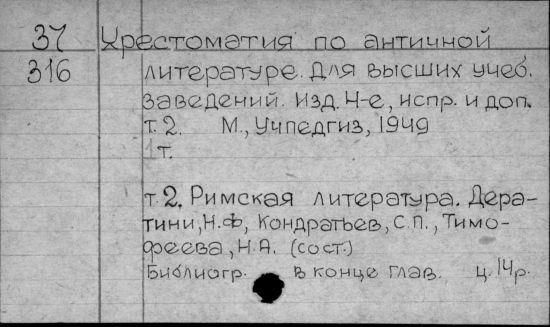 37 Хрестоматия по античной
316 литературе. Для высших учеб.
заведений. Изд. 4-е, испр. и доп.
т. 2. М., Учпедгиз, 1949
1 т.
т. 2. Римская литература. Дера-
тини, Н.Ф, Кондратьев, С.П., Тимо-
феева, Н.А. (сост.)
Библиогр. в конце глав. ц. 14 р.